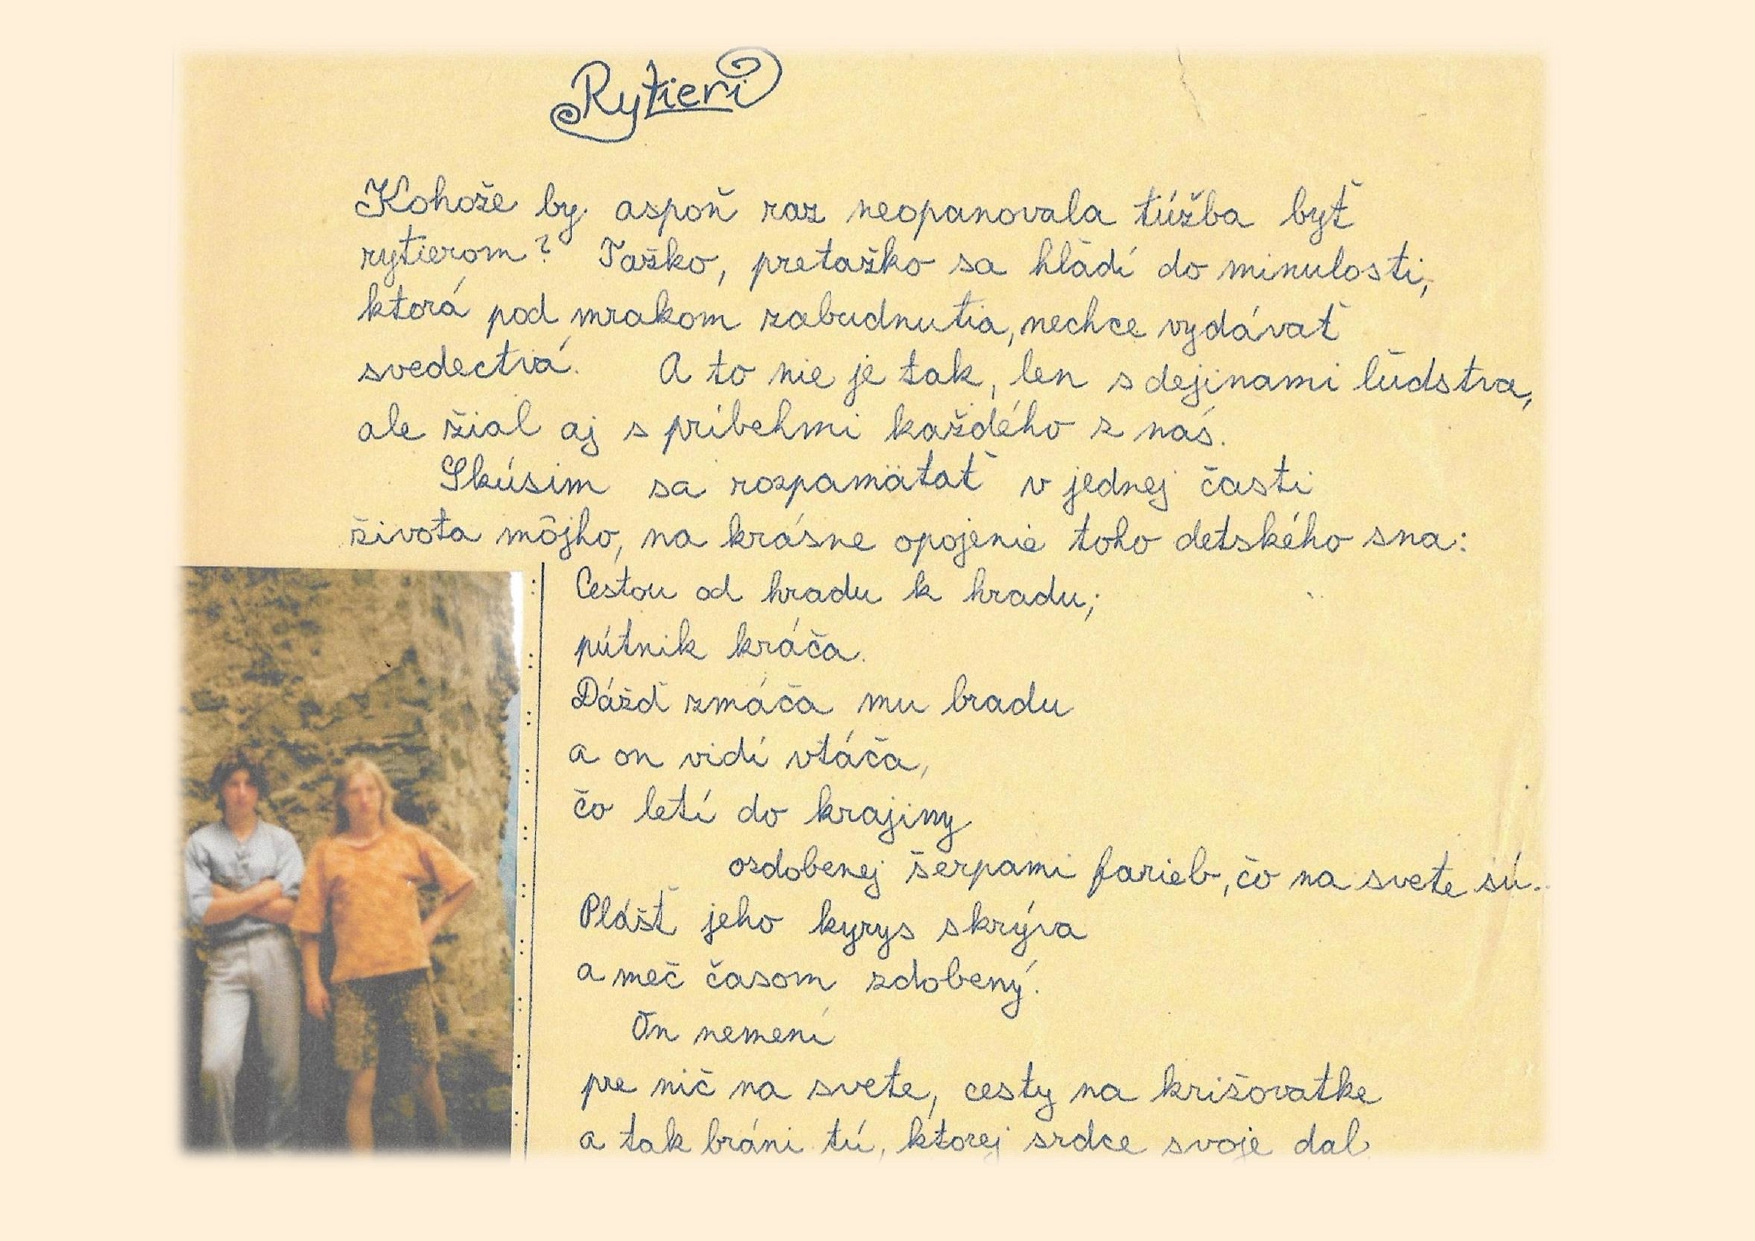 Rytieri
Kohože by aspoň raz neopanovala túžba byť
rytierom? Ťažko, preťažko sa hľadí do minulosti,
ktorá pod mrakom zabudnutia, nechce vydávať
svedectvá. A to nie je tak, len s dejinami ľudstva,
ale žiaľ aj s príbehmi každého z nás.
Skúsim sa rozpamätať v jednej časti
života môjho, na krásne opojenie toho detského sna:
Cestou od hradu k hradu;
pútnik kráča.
Dážď zmáča mu bradu
a on vidí vtáča,
čo letí do krajiny
ozdobenej šerpami farieb, čo na svete sú..
Plášť jeho kyrys skrýva
a meč časom zdobený.
On nemení
pre nič na svete, cesty na krišovatke
a tak bráni tú, ktorej srdce svoje dal